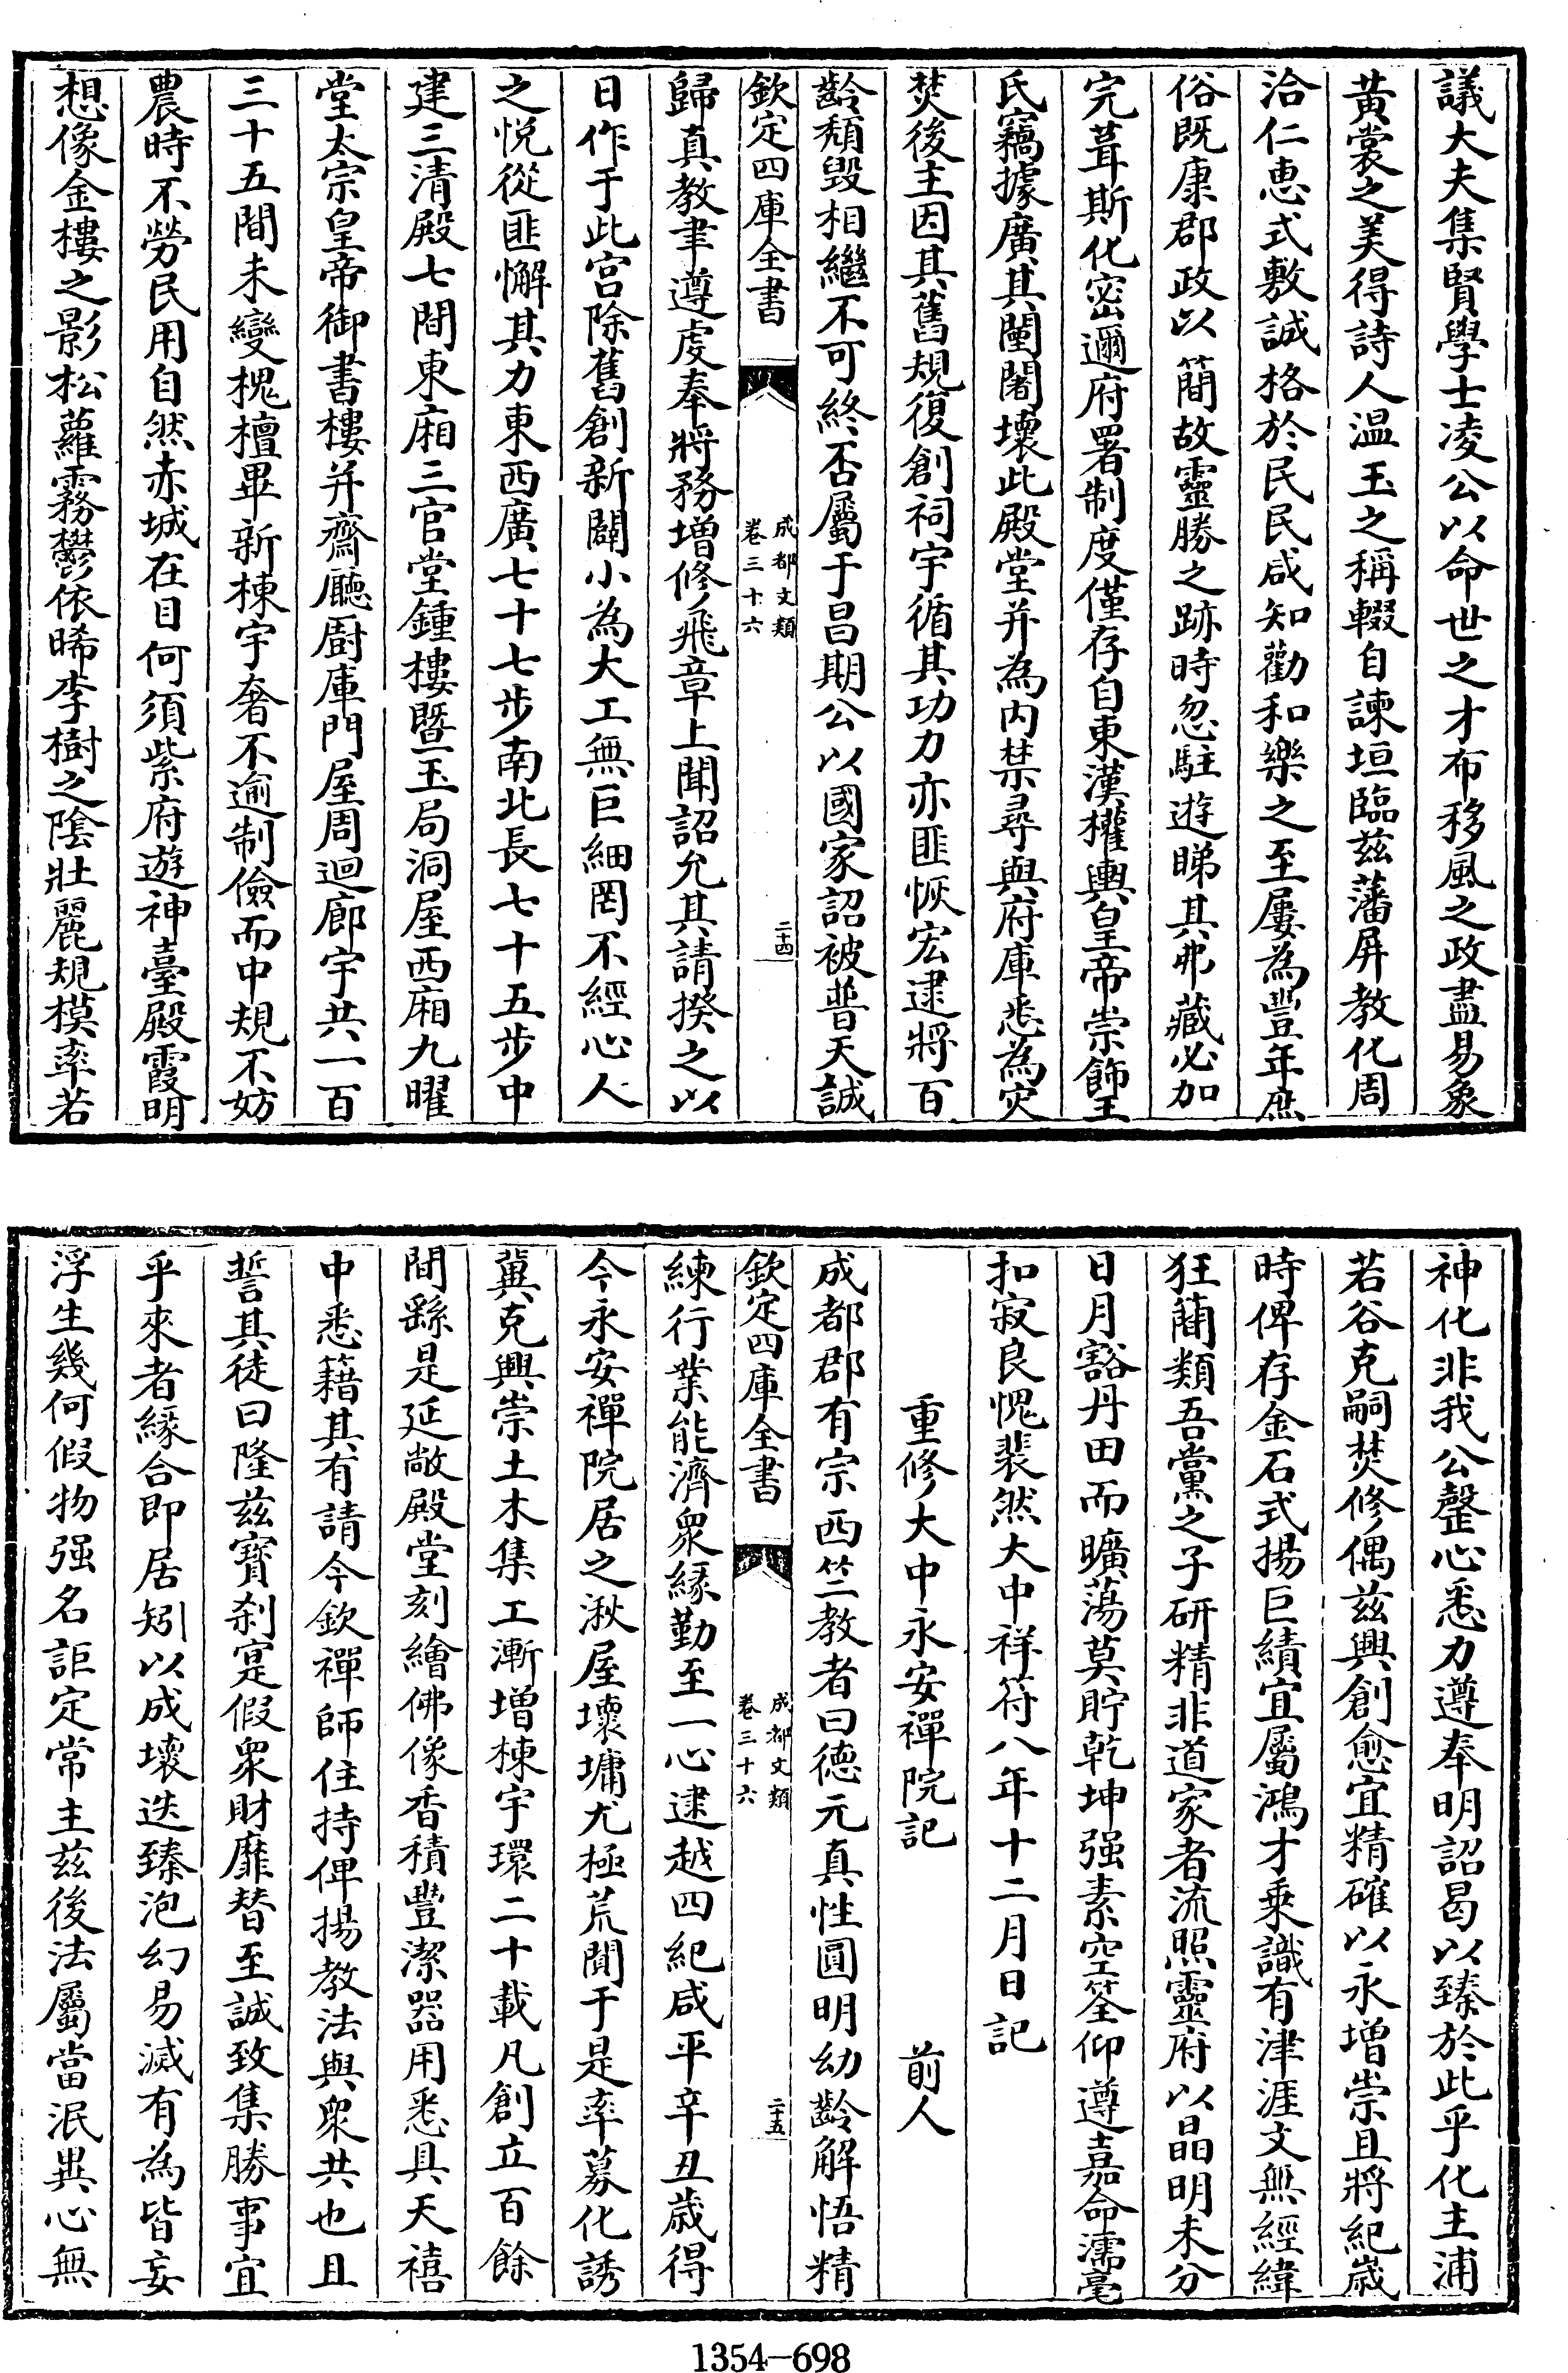 議大夫集賢學士凌公以命世之才布移風之政盡易象
黃裳之美得詩人温玉之稱輟自諫垣臨兹藩屏教化周
洽仁恵式敷誠格於民民咸知勸和樂之至屢為豐年庶
俗既康郡政以簡故靈勝之跡時忽駐遊睇其弗藏必加
完葺斯化密邇府署制度僅存自東漢權輿皇帝崇飾王
氏竊據廣其闉闍壞此殿堂并為内禁尋與府庫悉為灾
焚後主因其舊規復創祠宇循其功力亦匪恢宏逮將百
齡頹毁相繼不可終否屬于昌期公以國家詔被普天誠
欽定四庫全書
成都文類
卷三十六
二十四
歸真教聿遵虔奉將務增修飛章上聞詔允其請揆之以
日作于此宫除舊創新闢小為大工無巨細罔不經心人
之悦從匪懈其力東西廣七十七步南北長七十五步中
建三清殿七間東廂三官堂鍾樓暨玉局洞屋西廂九曜
堂太宗皇帝御書樓并齋廳厨庫門屋周迴廊宇共一百
三十五間未變槐檀畢新棟宇奢不逾制儉而中規不妨
農時不勞民用自然赤城在目何須紫府遊神臺殿霞明
想像金樓之影松蘿霧鬱依晞李樹之隂壯麗規模率若
神化非我公罄心悉力遵奉明詔曷以臻於此乎化主浦
若谷克嗣焚修偶兹興創愈宜精確以永增崇且將紀嵗
時俾存金石式揚巨績宜屬鴻才乗識有津涯文無經緯
狂蕳類吾黨之子研精非道家者流照靈府以晶明未分
日月豁丹田而曠蕩莫貯乾坤强素空筌仰遵嘉命濡毫
扣寂良愧裴然大中祥符八年十二月日記
重修大中永安禪院記　前人
成都郡有宗西竺教者曰徳元真性圓明幼齡解悟精
欽定四庫全書
成都文類
卷三十六
二十五
練行業能濟衆縁勤至一心逮越四紀咸平辛丑歳得
今永安禪院居之湫屋壞墉尤極荒閴于是率募化誘
冀克興崇土木集工漸增棟宇環二十載凡創立百餘
間繇是延敞殿堂刻繪佛像香積豐潔器用悉具天禧
中悉籍其有請今欽禪師住持俾揚教法與衆共也且
誓其徒曰隆兹寳刹寔假衆財靡替至誠致集勝事宜
乎來者縁合即居矧以成壞迭臻泡幻易滅有為皆妄
浮生幾何假物强名詎定常主兹後法屬當泯異心無
1354-698